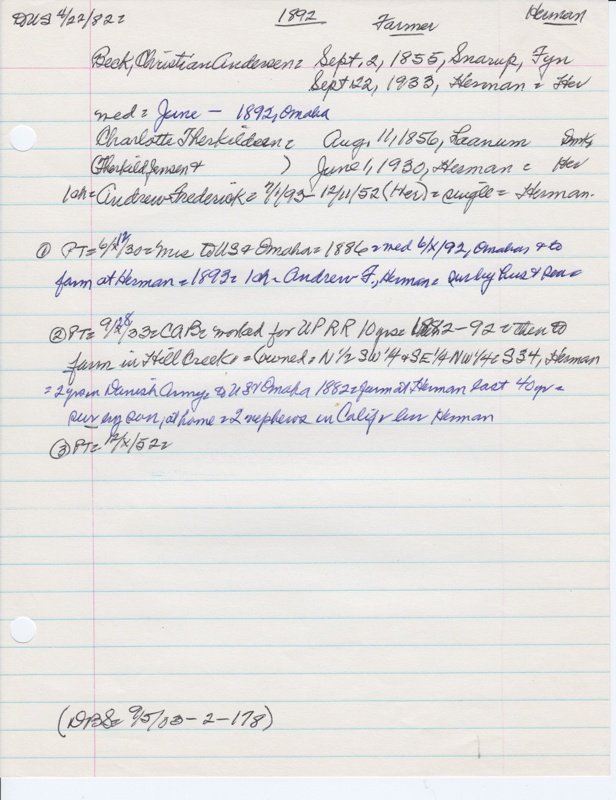 DUS 4/22/82= 1892 Farmer Herman
Beck, Christian Andersen= Sept. 2, 1855, Snarup, Fyn
Sept 22, 1933, Herman = Her
med = June - 1892, Omaha
Charlotte Therkildsen = Aug. 11, 1856, Laanum Dmk,
(Therkild Jensen & ) June 1, 1930, Herman = Her
1ch= Andrew Frederick = 7/1/93 - 12/11/52 (Her) = single = Herman.
① PT= 6/12/30 = to US & Omaha = 1886 = med 6/X/92, Omaha = & to
farm at Herman = 1893 = 1ch = Andrew F., Herman = sur by hus & son =
② PT= 9/28/33 = CAB = worked for UPRR 10 yrs = 1882-92 = then to
farm in Hell Creek = (owned = N 1/2 SW 1/4 & SE 1/4 NW 1/4 = S34, Herman
= 2 yrs in Danish Army = to US & Omaha 1882 = farm at Herman last 40 yr =
sur by son, at home = 2 nephews in Calif & bur Herman
③ PT= 12/X/52=
(DBS= 9/5/03-2-178)